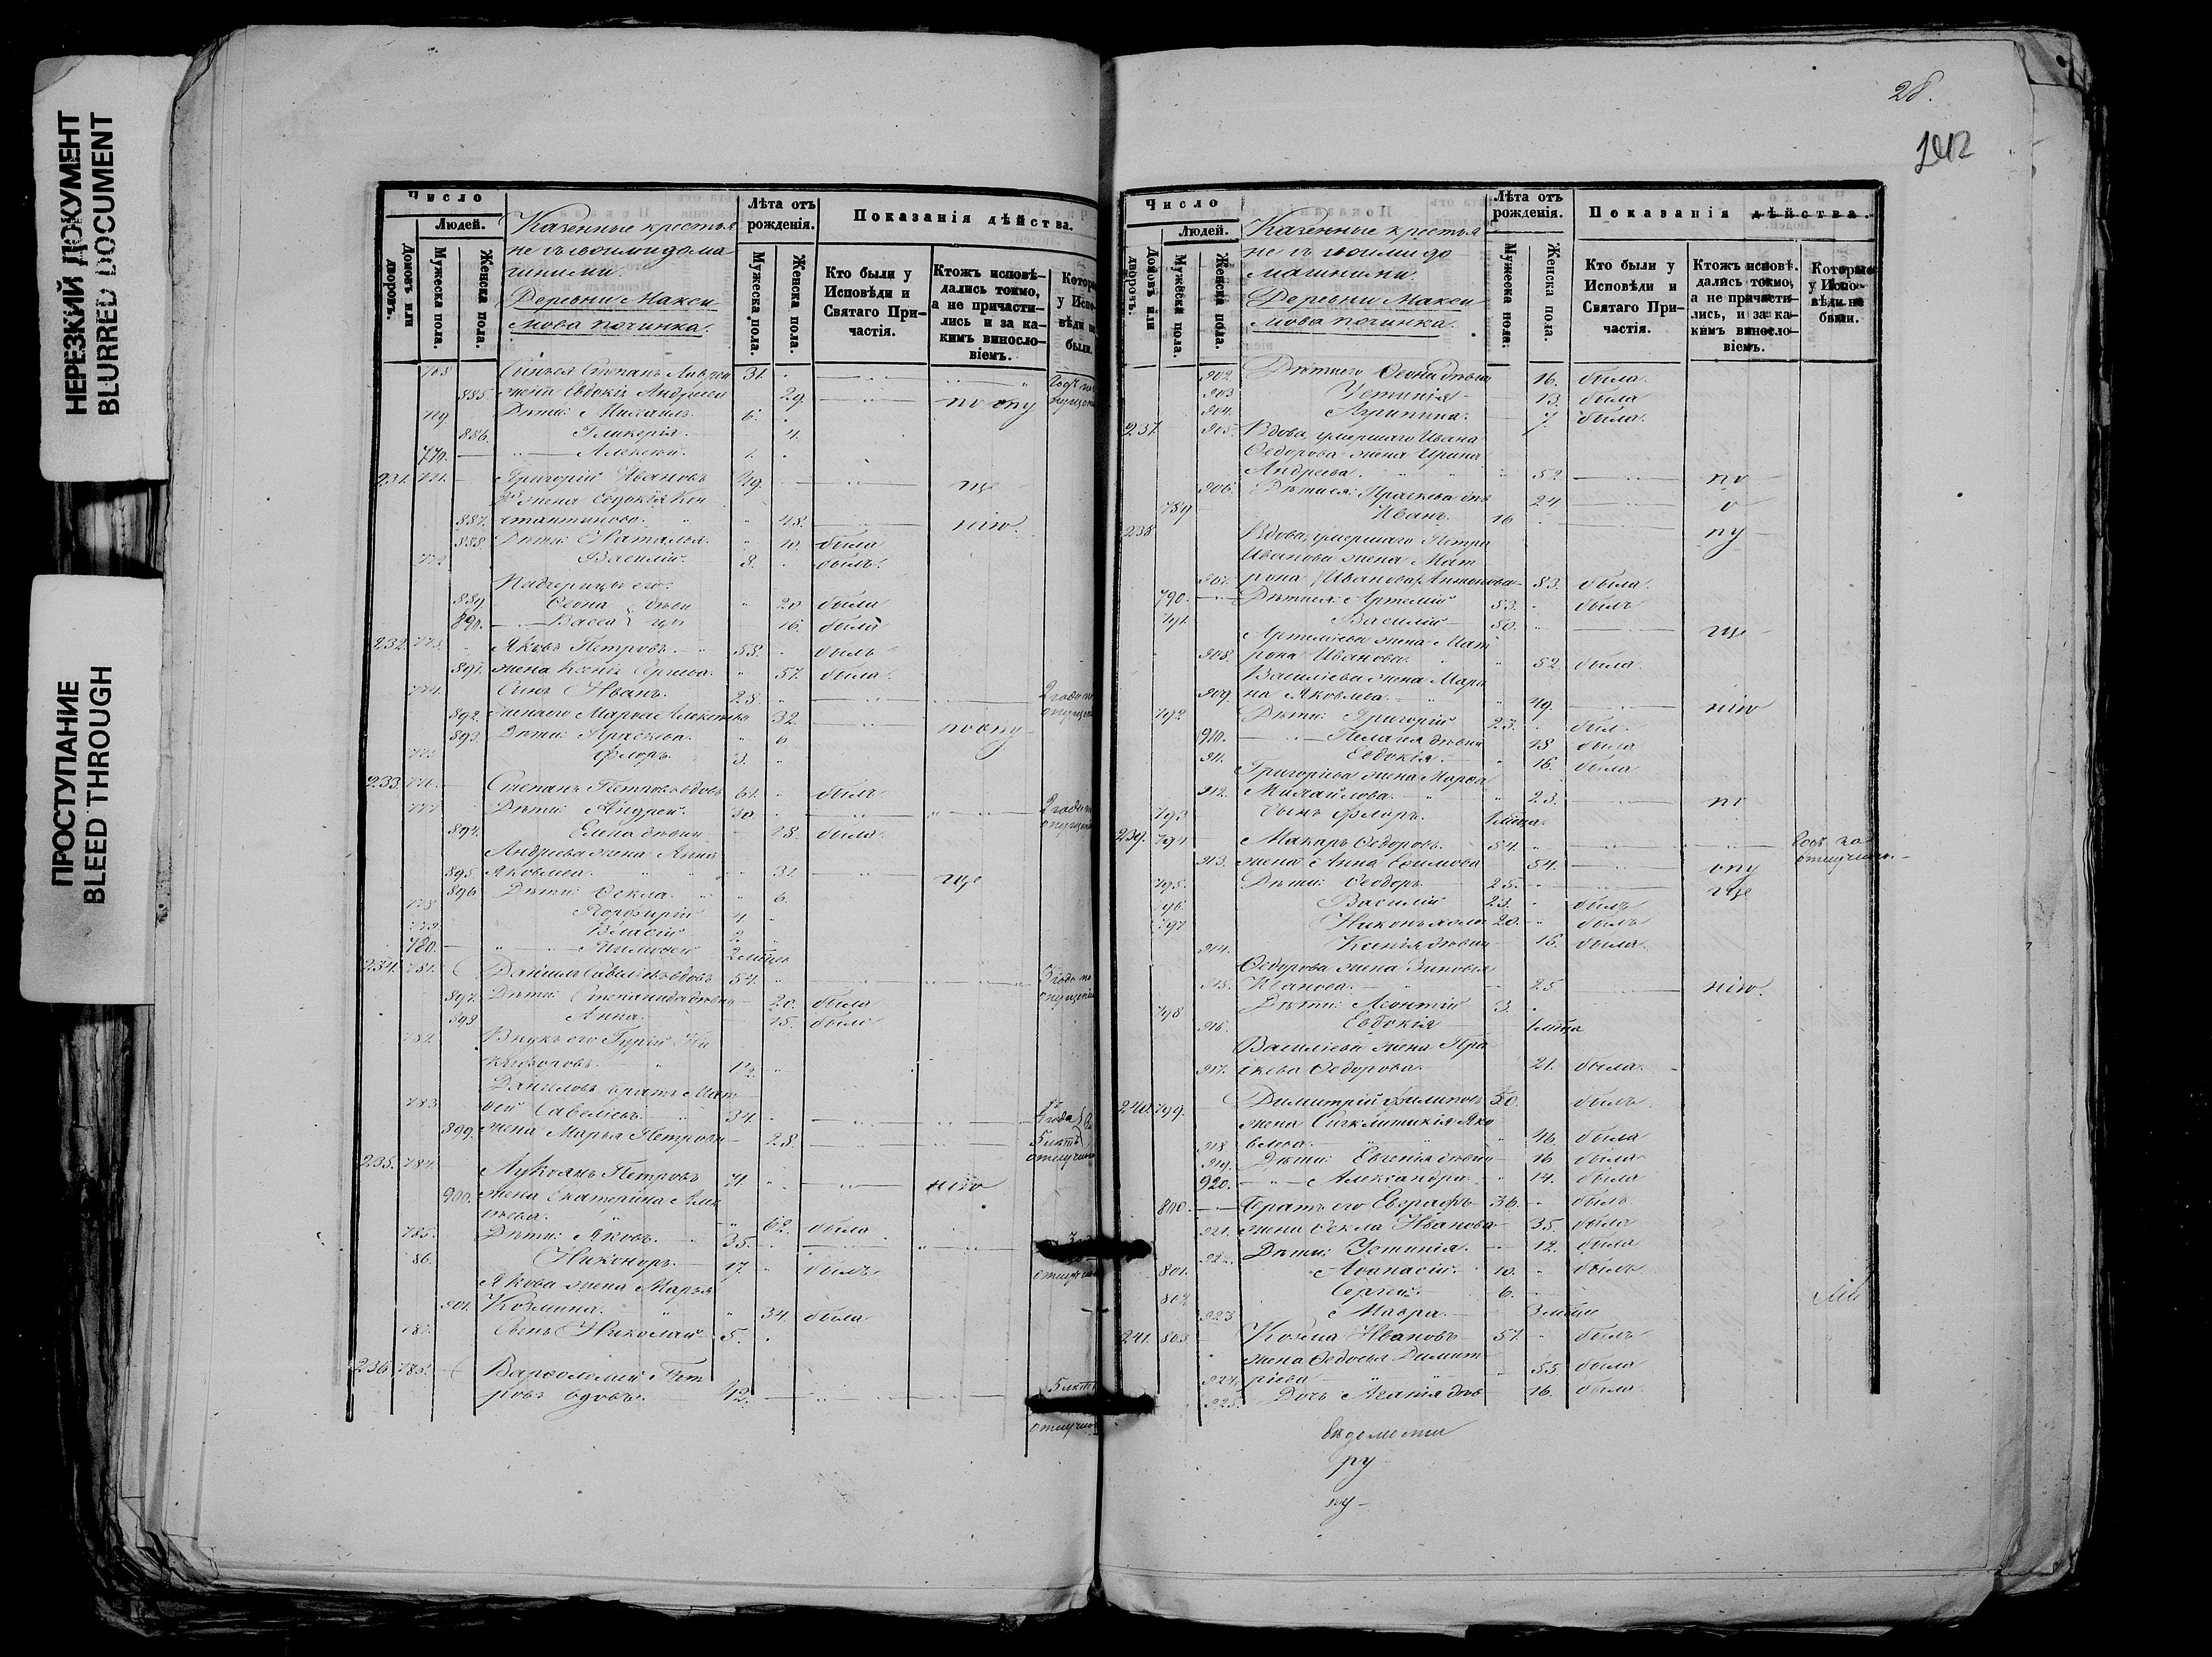 НЕРЕЗКИЙ ДОКУМЕНТ
BLURRED DOCUMENT
ПРОСТУПАНИЕ
BLEED THROUGH
Число
Людей.
Домовъ или дворовъ.
Мужеска пола.
Женска пола.
Казенные крестья
не съ своими дома
шними.
Деревни Макси
мова починка.
Лѣта отъ рожденія.
Мужеска пола.
Женска пола.
Показанія дѣйства.
Кто были у Исповѣди и Святаго Причастія.
Ктожъ исповѣдались токмо, а не причастились и за какимъ винословіемъ.
768 Степанъ 31.
885. жена Евдокія Андреева 29 по опу
769 Дѣти: Михаилъ. 6.
886. Гликерія. 4.
770. Алексѣй. 1.
231. 771. Григорій Ивановъ 49. ще
жена Евдокія Кон
887. стантинова. 48. нію.
888. Дѣти: Наталья. 10. была
772 Василій. 8. былъ.
Падчерицы его:
889 Ѳеона дѣви 20 была
890. Васса цы 16. была
232. 773. Яковъ Петровъ. 58. былъ
891. жена Ксенія 57. была.
774. Сынъ Иванъ. 28.
892. жена его Марѳа Алексѣева 32.
893. Дѣти: Прасковья. 6 по опу
775 Флоръ. 3.
233. 776. Степанъ Петровъ вдовъ 61. былъ.
777 Дѣти: Андрей. 30.
894. Елена дѣвица 18. была.
Андреева жена Анна
895. Яковлева. 31. ще
896. Дѣти: Ѳекла. 6.
778 Порфирій 4.
779. Власій 2.
780. Тимофей 2 мѣсяц
234. 781. Даніилъ Савельевъ вдовъ 54.
897. Дѣти: Степанида дѣвица 20. была
898. Анна. 15. была
782. Внукъ его Гурій Ни
кифоровъ. 1½
Даниловъ братъ Мат
783 ѳей Савельевъ. 34.
899. жена Марья Петрова 28.
235. 784. Лукоянъ Петровъ 71. нію
900. жена Екатерина Але
ксѣева. 62. была
785. Дѣти: Яковъ. 35.
86. Никоноръ. 17. былъ
Якова жена Марья
901. Козмина. 34. была
787. Сынъ Николай 5.
236 788. Варѳоломей Пет
ровъ вдовъ. 42. 5 лѣтъ
28.
Число
Людей.
Домовъ или дворовъ.
Мужеска пола.
Женска пола.
Казенные крестья
не съ своими до
машними.
Деревни Макси
мова починка.
Лѣта отъ рожденія.
Мужеска пола.
Женска пола.
Показанія дѣйства.
Кто были у Исповѣди и Святаго Причастія.
Ктожъ исповѣдались токмо, а не причастились, и за какимъ винословіемъ.
Которые у Исповѣди не были.
902. Ѳеона дѣвица 16. была.
903 Устинія 13. была
904. Агрипина. 7. была.
237. 905. Вдова, умершаго Ивана
Ѳедорова жена Ирина
Андреева. 52. по
906. Дѣти ея: Прасковья дѣв 24 о
789 Иванъ. 16
238 Вдова, умершаго Петра пу
Иванова жена Мат
907. рона Антонова 83. была.
790. Дѣти ея: Артемій 53. былъ
791. Василій 50. ще
Артеміева жена Мат
908. рона Иванова. 52. была.
Василіева жена Мари
909. на Яковлева. 49. нію
792 Дѣти: Григорій 23. был.
910. Пелагея дѣвица 18 была
911. Евдокія. 16. была
Григоріева жена Марѳа
912. Михайлова. 23. по
793 Сынъ Флоръ.
239. 794 Макаръ Ѳедоровъ. 54.
913. жена Анна Ефимова 54. опу
795. Дѣти: Ѳеодоръ 25. ще
796. Василій 23. былъ
797 Никонъ холос 20. былъ
914. Ксенія дѣвица 16. была
Ѳедорова жена Зиновья
915. Иванова. 25 нію.
798 Дѣти: Леонтій 3.
916. Евдокія
Василіева жена Пра
917. сковья Ѳедорова. 21. была.
240. 799. Димитрій Филиповъ 50. былъ
жена Синклитикія Яко
918. влева. 46. была
919. Дѣти: Евгенія дѣвица 16 была
920. Александра 14. была
800. Братъ его Евграфъ 36. былъ
921. жена Ѳекла Иванова 35. была
922. Дѣти: Устинія. 12. была
801. Аѳанасій. 10. былъ.
802 Сергей. 6.
923. Мавра.
241. 803 Козма Ивановъ 57. былъ
жена Ѳедосья Димит
924. ріева 55 была
925. Дочь Агафія дѣв 16. была.
вѣдомости
ру
ку